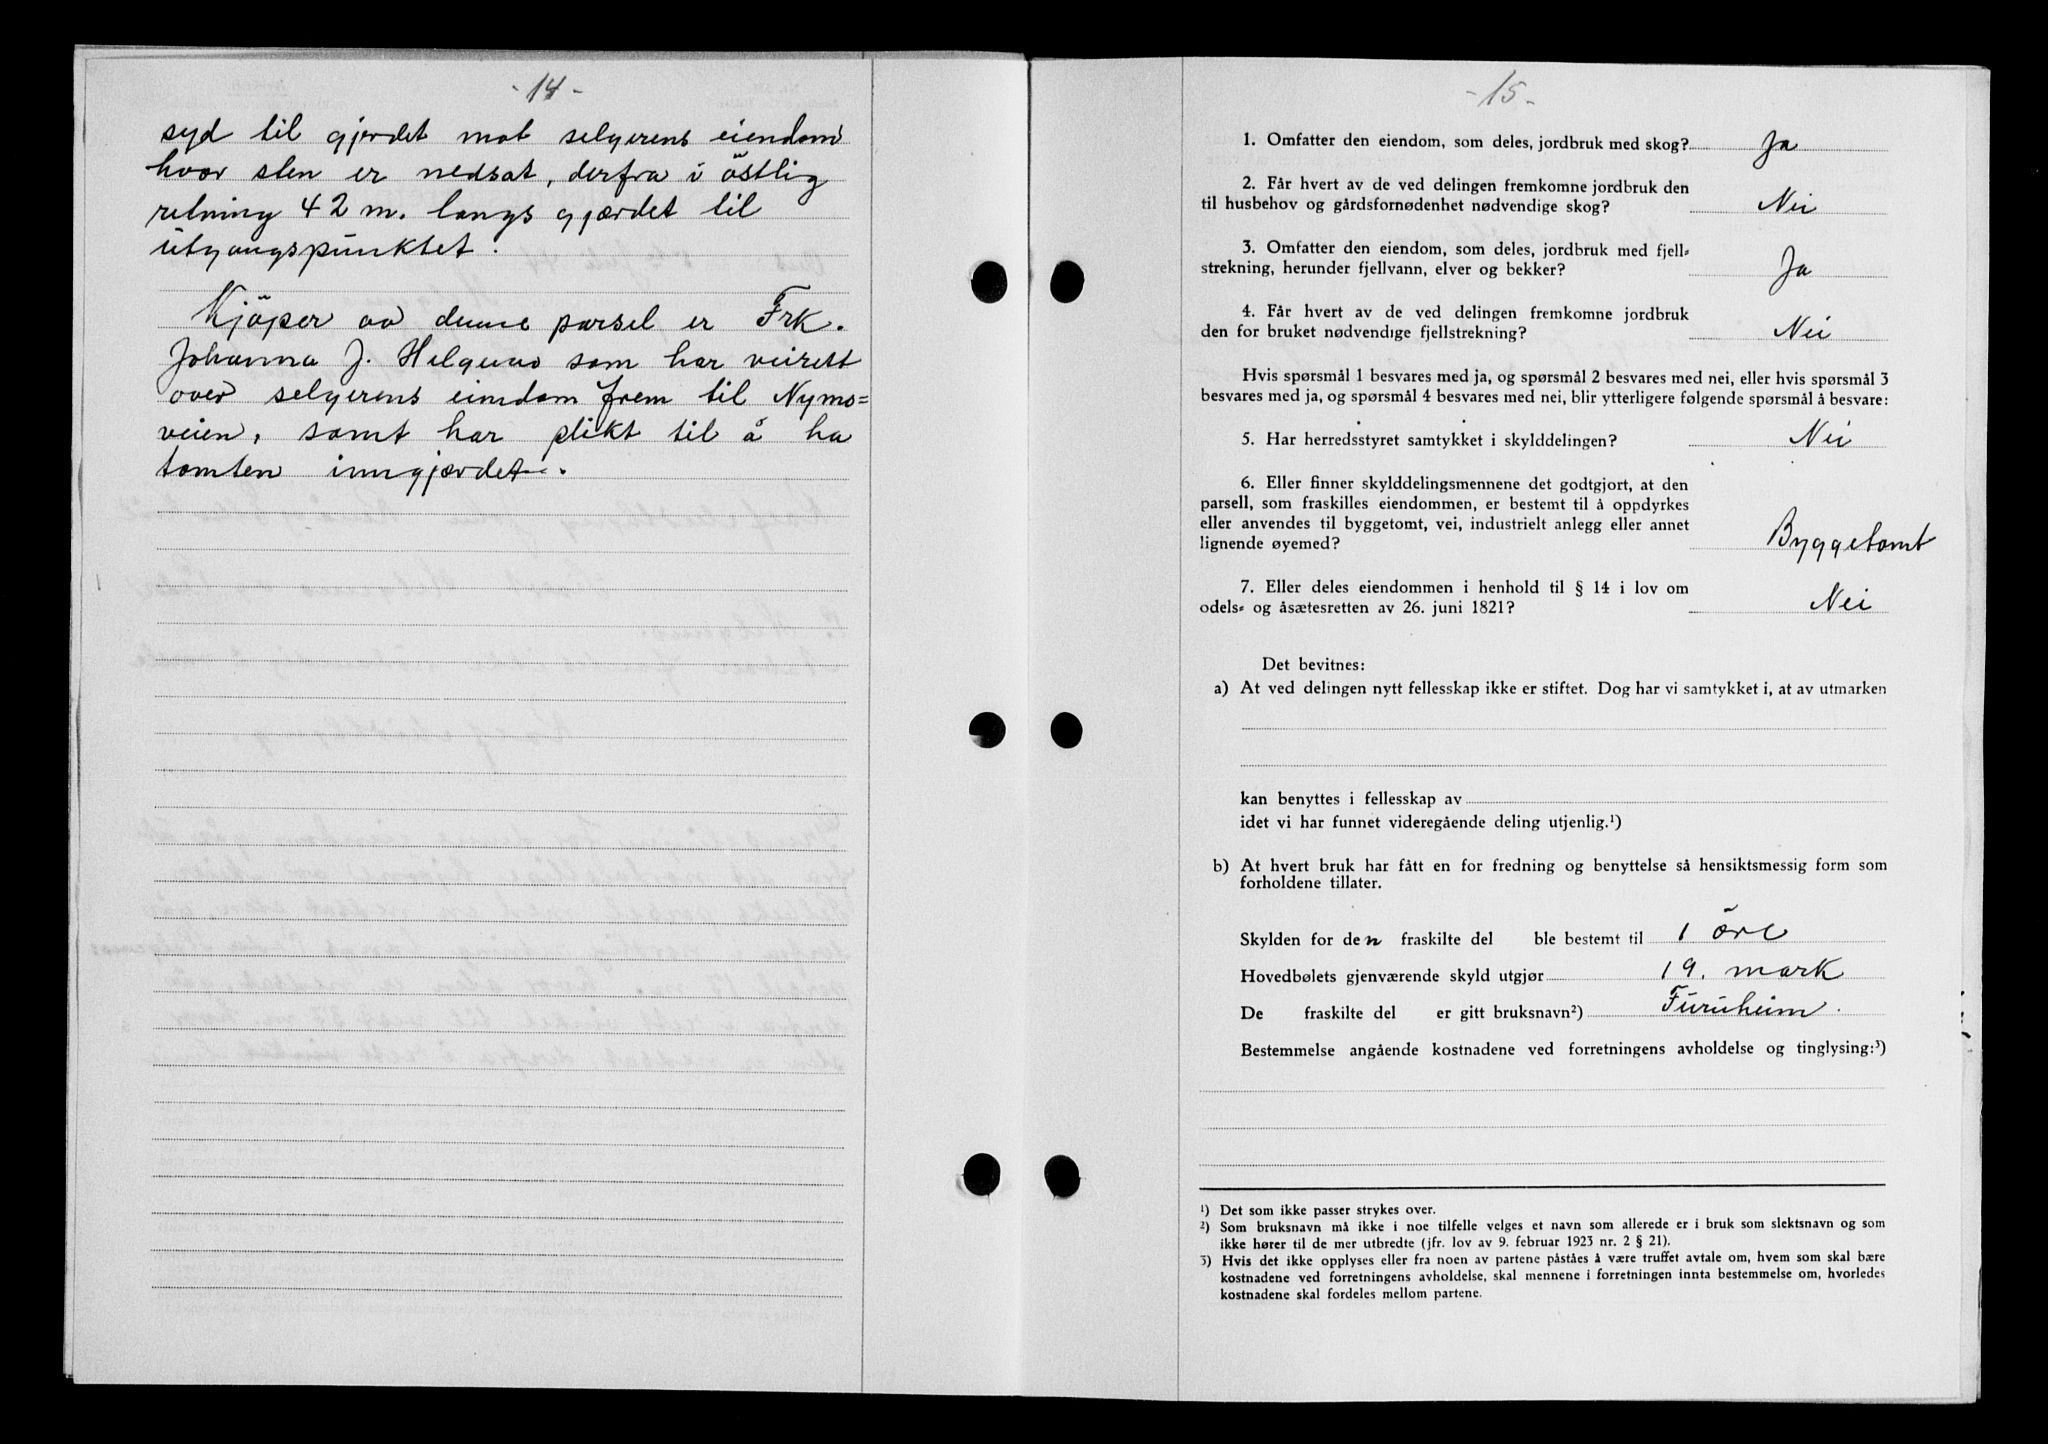 - 14 -
syd til gjerdet mot selgerens eiendom
hvor sten er nedsat, derfra i östlig
retning 42 m. langs gjærdet til
utgangspunktet.
Kjöper av denne parsel er Frk.
Johanna J. Helgenes som har veirett
over selgerens eiendom frem til Nyms=
veien, samt har plikt til å ha
tomten inngjærdet.
- 15 -
1. Omfatter den eiendom, som deles, jordbruk med skog? Ja
2. Får hvert av de ved delingen fremkomne jordbruk den
til husbehov og gårdsfornødenhet nødvendige skog? Nei
3. Omfatter den eiendom, som deles, jordbruk med fjell=
strekning, herunder fjellvann, elver og bekker? Ja
4. Får hvert av de ved delingen fremkomne jordbruk
den for bruket nødvendige fjellstrekning? Nei
Hvis spørsmål 1 besvares med ja, og spørsmål 2 besvares med nei, eller hvis spørsmål 3
besvares med ja, og spørsmål 4 besvares med nei, blir ytterligere følgende spørsmål å besvare:
5. Har herredsstyret samtykket i skylddelingen? Nei
6. Eller finner skylddelingsmennene det godtgjort, at den
parsell, som fraskilles eiendommen, er bestemt til å oppdyrkes
eller anvendes til byggetomt, vei, industrielt anlegg eller annet
lignende øyemed? Byggetomt
7. Eller deles eiendommen i henhold til § 14 i lov om
odels= og åsætesretten av 26. juni 1821? Nei
Det bevitnes:
a) At ved delingen nytt fellesskap ikke er stiftet. Dog har vi samtykket i, at av utmarken
kan benyttes i fellesskap av
idet vi har funnet videregående deling utjenlig.¹)
b) At hvert bruk har fått en for fredning og benyttelse så hensiktsmessig form som
forholdene tillater.
Skylden for den fraskilte del ble bestemt til 1 öre
Hovedbølets gjenværende skyld utgjør 19. mark
De fraskilte del er gitt bruksnavn²) Furuheim.
Bestemmelse angående kostnadene ved forretningens avholdelse og tinglysing:³)
¹) Det som ikke passer strykes over.
²) Som bruksnavn må ikke i noe tilfelle velges et navn som allerede er i bruk som slektsnavn og som
ikke hører til de mer utbredte (jfr. lov av 9. februar 1923 nr. 2 § 21).
³) Hvis det ikke opplyses eller fra noen av partene påståes å være truffet avtale om, hvem som skal bære
kostnadene ved forretningens avholdelse, skal mennene i forretningen innta bestemmelse om, hvorledes
kostnadene skal fordeles mellom partene.